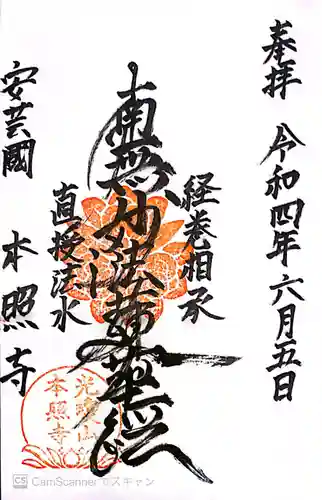 奉拝
令和四年六月五日
経巻相承
南無妙法蓮華経
直授法水
安芸國
本照寺
光澤山
本照寺
CS CamScanner でスキャン